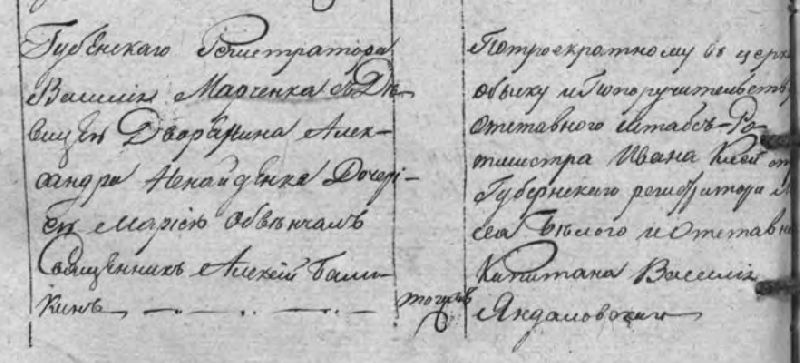 Губѣнскаго Регистратора
Василія Марченка съ Дѣ-
вицею Дворянина Алек-
сандра Ненайденка Дочерь-
ею Маріею обвѣнчалъ
Священникъ Алексѣй Бали-
кинъ
По троекратному въ церк
обыску и по поручительств
Отставного Штабсъ-Ро-
тмистра Ивана
Губернскаго регистратора
Бѣлого и Отставн
Капитана Василія
Яндаловскаго